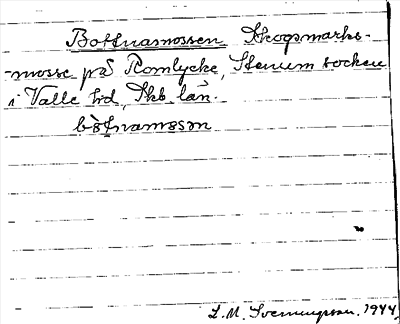 Bottnamossen Skogsmarks-
mosse på Romlycke, Stenum socken
i Valle hd, Skb län.
bòtnamåsən
L. M. Svenungsson. 1944